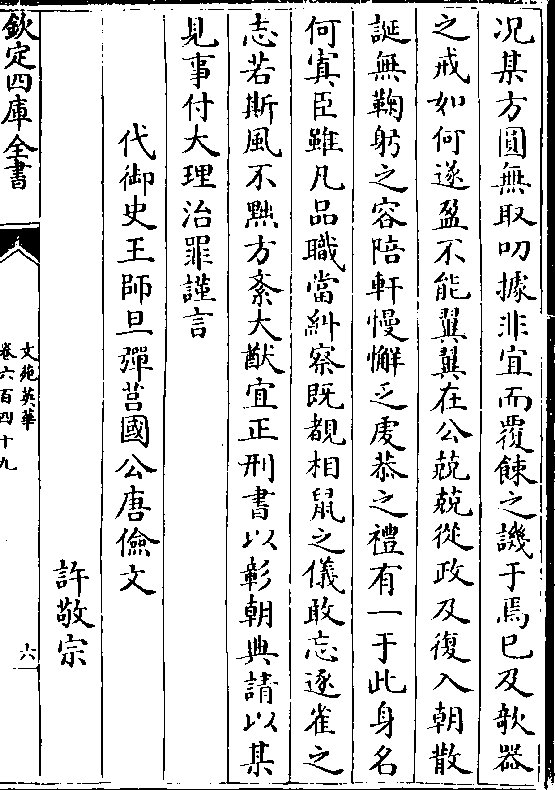 况某方圓無取叨據非宜而覆餗之譏于焉已及欹器
之戒如何遂盈不能翼翼在公兢兢從政及復入朝散
誕無鞠躬之容陪軒慢懈乏虔恭之禮有一于此身名
何寘臣雖凡品職當糾察既覩相鼠之儀敢忘逐雀之
志若斯風不黜方紊大猷宜正刑書以彰朝典請以某
見事付大理治罪謹言
代御史王師旦彈莒國公唐儉文
許敬宗
欽定四庫全書
文苑英華
卷六百四十九
六